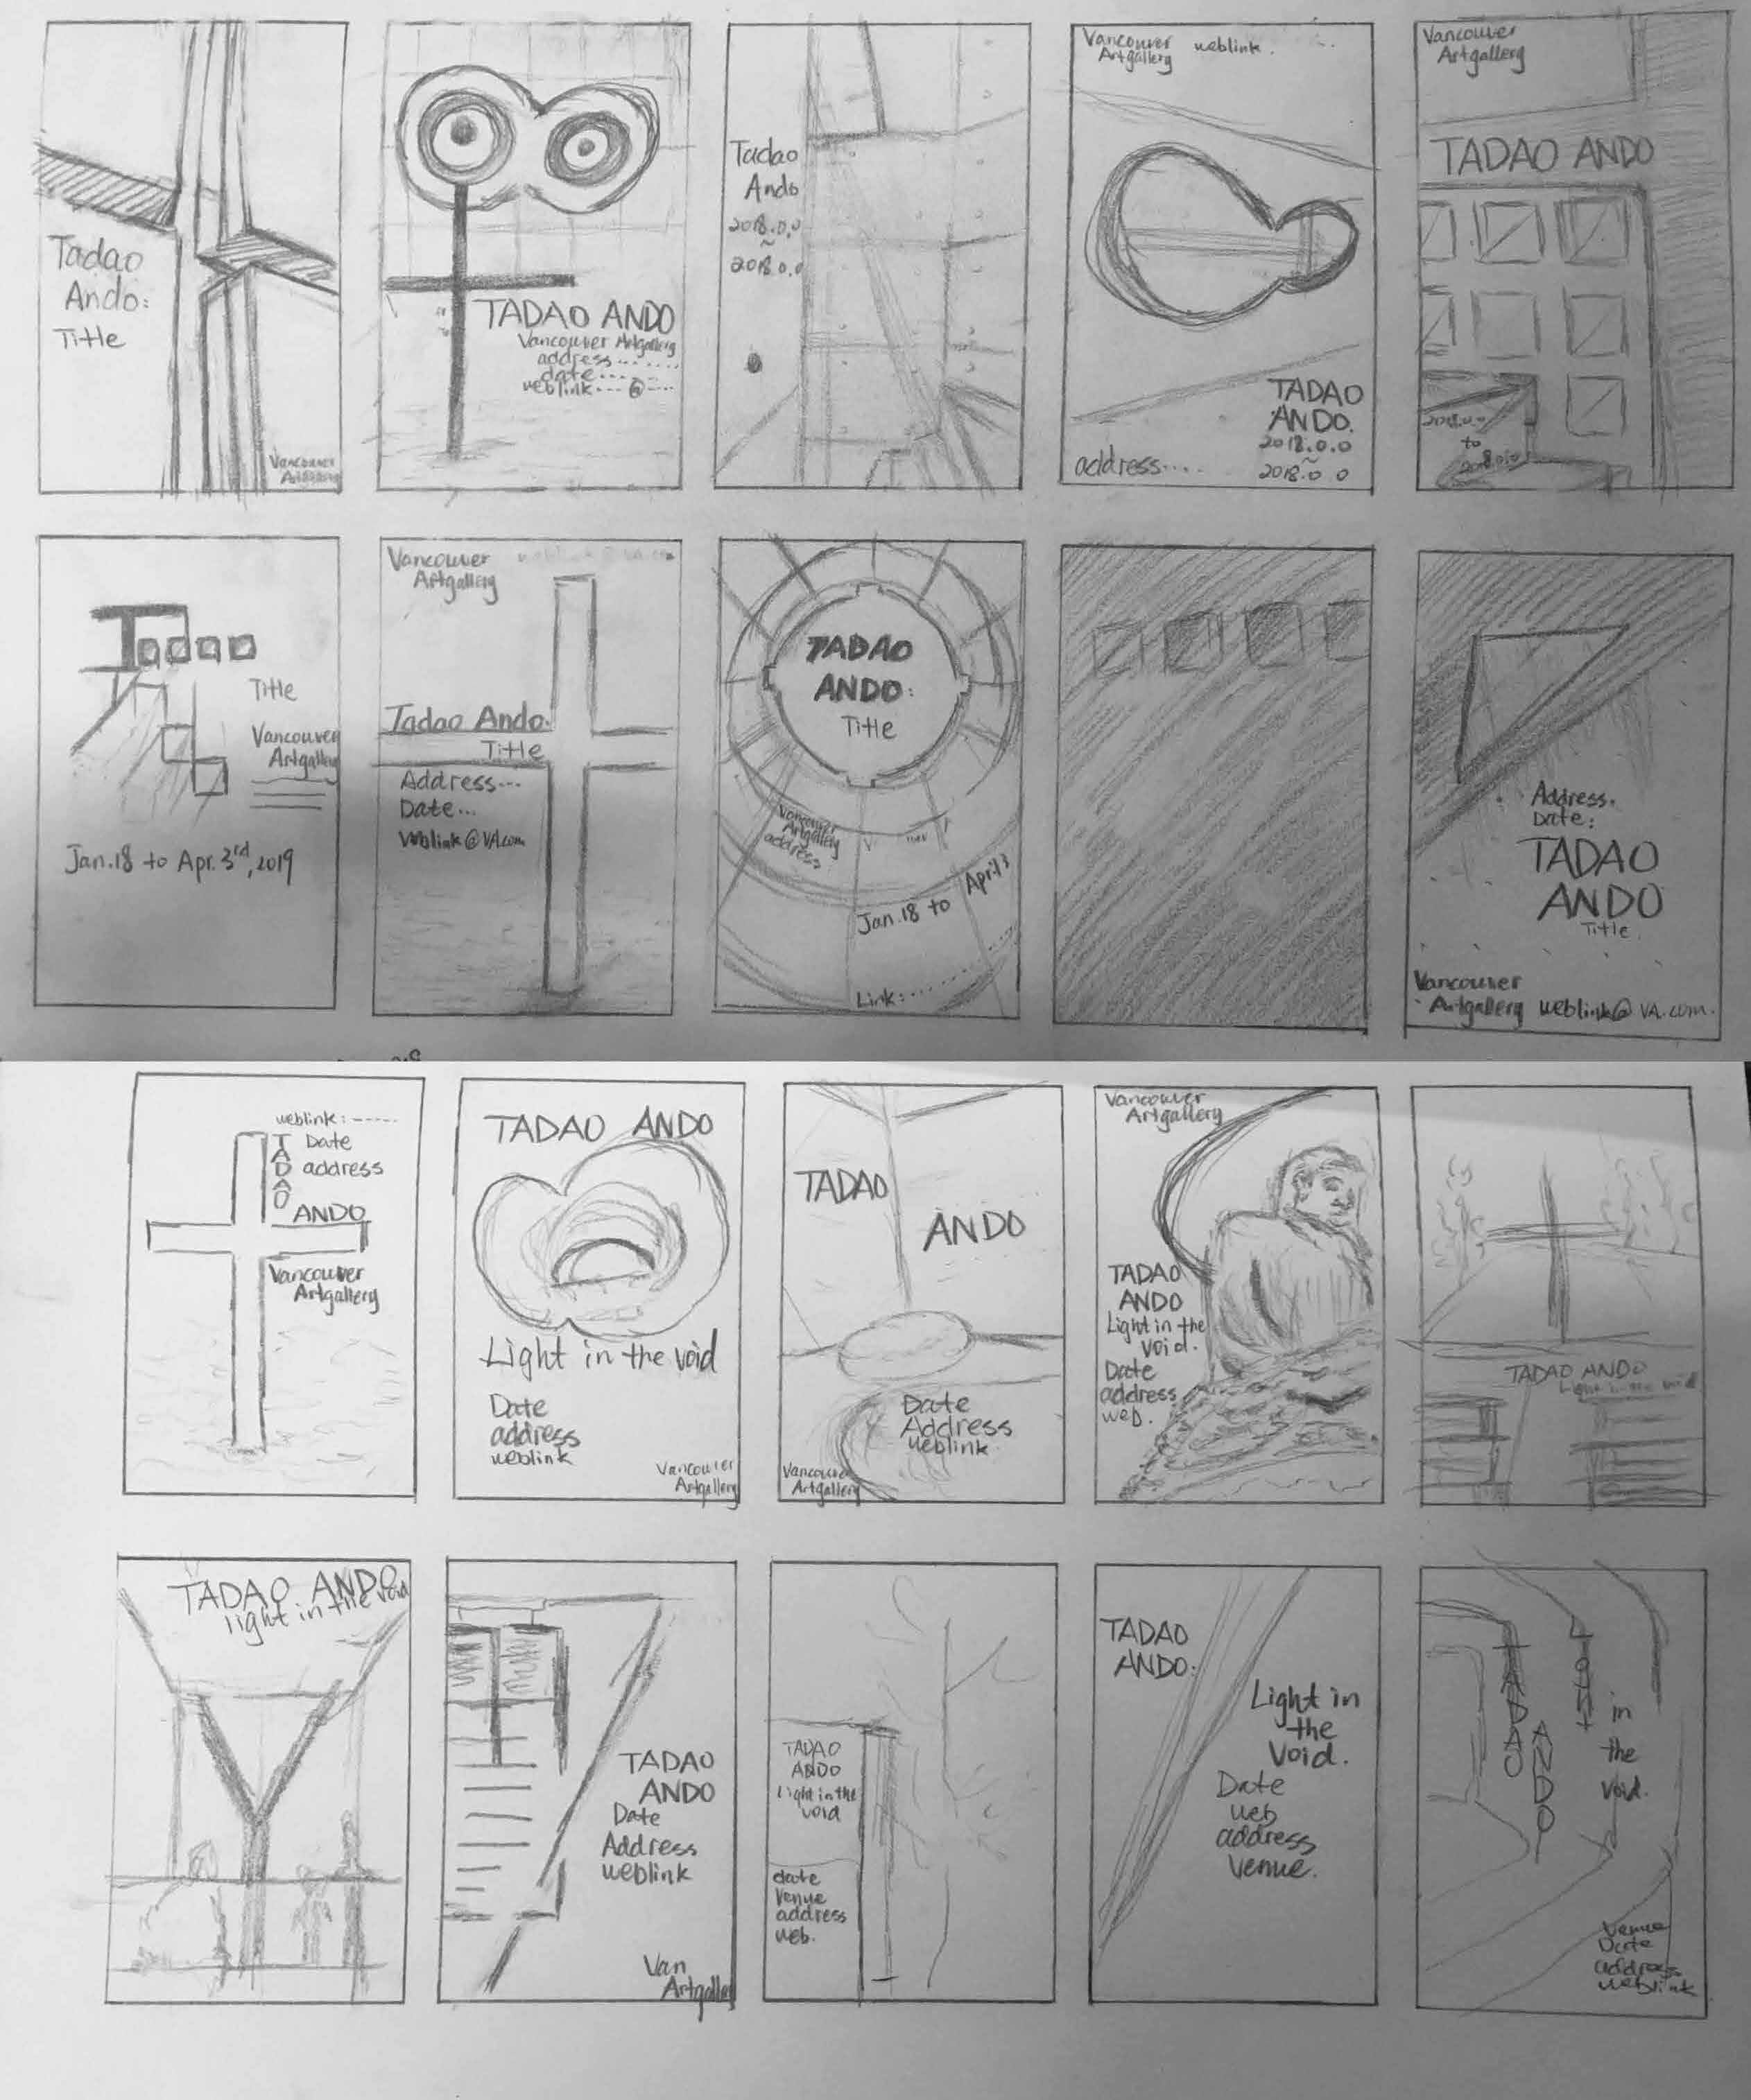 Tadao
Ando:
Title
Vancouver
Artgallery
TADAO ANDO
Vancouver Artgallery
address......
date....
weblink---@----
Tadao
Ando
2018.0.0
~
2018.0.0
Vancouver weblink.
Artgallery
TADAO
ANDO.
2018.0.0
~
2018.0 0
address....
Vancouver
Artgallery
TADAO ANDO
2018.0.0
to
Tadao
Title
Vancouver
Artgallery
Jan.18 to Apr. 3rd, 2019
Vancouver
Artgallery
Tadao Ando.
Title
Address...
Date...
Weblink@VA.com
TADAO
ANDO:
Title
Vancouver
Artgallery
address
Jan.18 to April 3
Link:........
Address.
Date:
TADAO
ANDO
Title.
Vancouver
Artgallery weblink@VA.com.
weblink:-----
TADAO
Date
address
ANDO
Vancouver
Artgallery
TADAO ANDO
Light in the void
Date
address
weblink
Vancouver
Artgallery
TADAO
ANDO
Date
Address
weblink
Vancouver
Artgallery
Vancouver
Artgallery
TADAO
ANDO
Light in the
void.
Date
address
web.
TADAO ANDO
Light in the void
TADAO ANDO
light in the void
TADAO
ANDO
Date
Address
weblink
Van
Artgallery
TADAO
ANDO
Light in the
void
date
venue
address
web.
TADAO
ANDO:
Light in
the
Void.
Date
web
address
venue.
TADAO
ANDO
Light
in
the
void.
Venue
Date
address
weblink